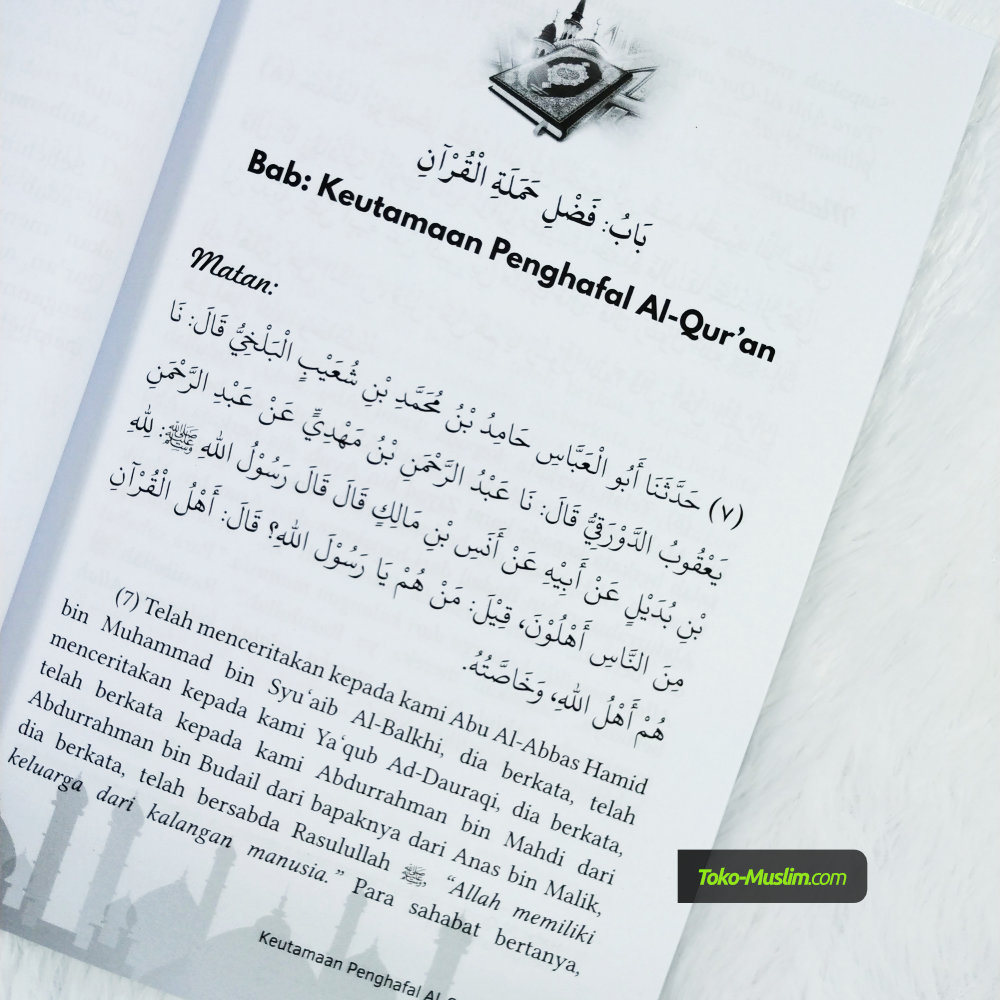 بَابُ: فَضْلِ حَمَلَةِ الْقُرْآنِ
Bab: Keutamaan Penghafal Al-Qur’an
Matan:
(٧) حَدَّثَنَا أَبُو الْعَبَّاسِ حَامِدُ بْنُ مُحَمَّدِ بْنِ شُعَيْبٍ الْبَلْخِيُّ قَالَ: نَا
يَعْقُوبُ الدَّوْرَقِيُّ قَالَ: نَا عَبْدُ الرَّحْمَنِ بْنُ مَهْدِيٍّ عَنْ عَبْدِ الرَّحْمَنِ
بْنِ بُدَيْلٍ عَنْ أَبِيْهِ عَنْ أَنَسِ بْنِ مَالِكٍ قَالَ قَالَ رَسُوْلُ اللهِ ﷺ: لِلّٰهِ
مِنَ النَّاسِ أَهْلُوْنَ، قِيْلَ: مَنْ هُمْ يَا رَسُوْلَ اللهِ؟ قَالَ: أَهْلُ الْقُرْآنِ
هُمْ أَهْلُ اللهِ، وَخَاصَّتُهُ.
(7) Telah menceritakan kepada kami Abu Al-Abbas Hamid
bin Muhammad bin Syu‘aib Al-Balkhi, dia berkata, telah
menceritakan kepada kami Ya‘qub Ad-Dauraqi, dia berkata,
telah berkata kepada kami Abdurrahman bin Mahdi dari
Abdurrahman bin Budail dari bapaknya dari Anas bin Malik,
dia berkata, telah bersabda Rasulullah ﷺ, “Allah memiliki
keluarga dari kalangan manusia.” Para sahabat bertanya,
Keutamaan Penghafal Al-
Toko-Muslim.com